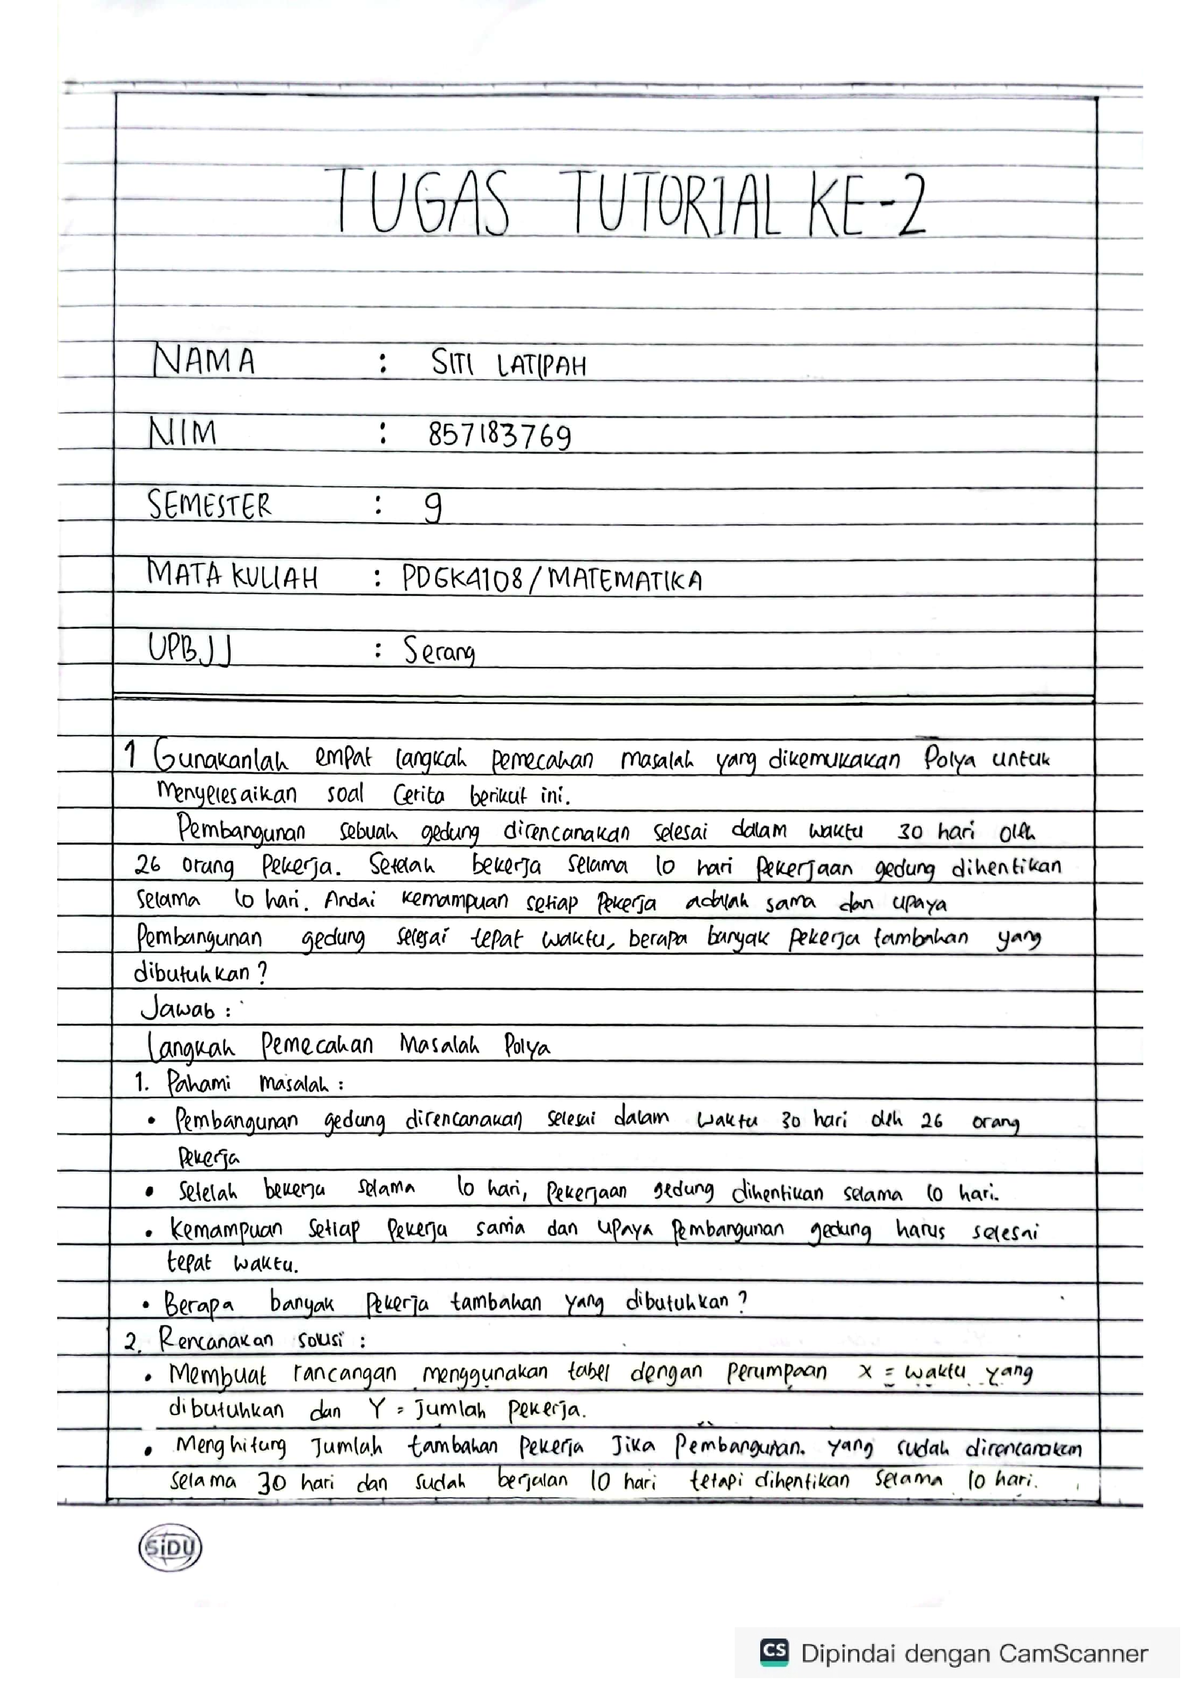 TUGAS TUTORIAL KE-2
NAMA : SITI LATIPAH
NIM : 857183769
SEMESTER : 9
MATA KULIAH : PDGK4108/MATEMATIKA
UPBJJ : Serang
1 Gunakanlah empat langkah pemecahan masalah yang dikemukakan Polya untuk
menyelesaikan soal cerita berikut ini.
Pembangunan sebuah gedung direncanakan selesai dalam waktu 30 hari oleh
26 orang pekerja. Setelah bekerja selama 10 hari pekerjaan gedung dihentikan
selama 10 hari. Andai kemampuan setiap pekerja adalah sama dan upaya
Pembangunan gedung selesai tepat waktu, berapa banyak pekerja tambahan yang
dibutuhkan?
Jawab :
Langkah Pemecahan Masalah Polya
1. Pahami masalah :
• Pembangunan gedung direncanakan selesai dalam waktu 30 hari oleh 26 orang
Pekerja
• Setelah bekerja selama 10 hari, pekerjaan gedung dihentikan selama 10 hari.
• Kemampuan setiap pekerja sama dan upaya pembangunan gedung harus selesai
tepat waktu.
• Berapa banyak pekerja tambahan yang dibutuhkan?
2. Rencanakan solusi :
• Membuat rancangan menggunakan tabel dengan perumpaan x = waktu yang
dibutuhkan dan Y = jumlah pekerja.
• Menghitung jumlah tambahan pekerja jika pembangunan. yang sudah direncanakan
selama 30 hari dan sudah berjalan 10 hari tetapi dihentikan selama 10 hari.
SiDU
CS Dipindai dengan CamScanner